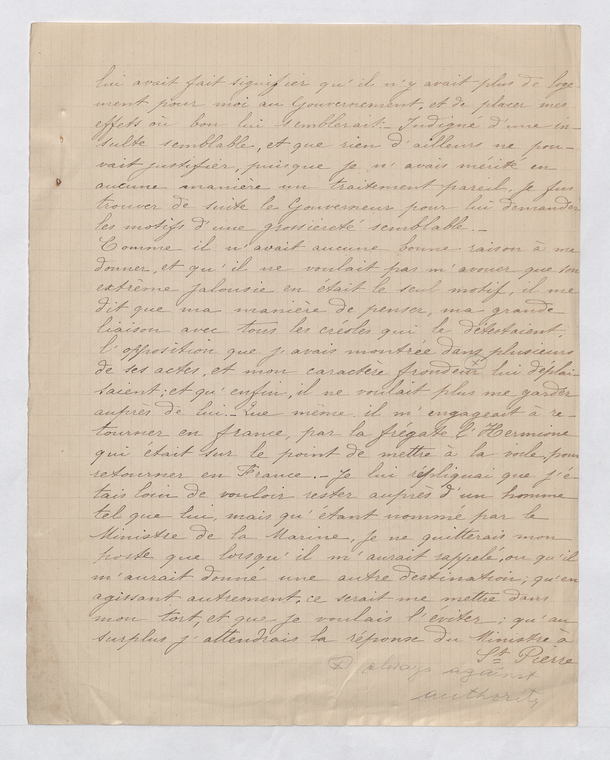 lui avait fait signifier qu'il n'y avait plus de loge-
ment pour moi au Gouvernement, et de placer mes
effets où bon lui semblerait. - Indigné d'une in-
sulte semblable, et que rien d'ailleurs ne pou-
vait justifier, puisque je n'avais mérité en
aucune manière un traitement pareil. Je fus
trouver de suite le Gouverneur pour lui demander
les motifs d'une grossièreté semblable. -
Comme il n'avait aucune bonne raison à me
donner, et qu'il ne voulait pas m'avouer que son
extrême jalousie en était le seul motif, il me
dit que ma manière de penser, ma grande
liaison avec tous les créoles qui le détestaient,
l'opposition que j'avais montrée dans plusieurs
de ses actes, et mon caractère frondeur lui déplai-
saient; et qu'enfin, il ne voulait plus me garder
auprès de lui. - Que même il m'engageait à re-
tourner en france, par la frégate l'Hermione
qui était sur le point de mettre à la voile, pour
retourner en France. - Je lui répliquai que j'é-
tais loin de vouloir rester auprès d'un homme
tel que lui, mais qu'étant nommé par le
Ministre de la Marine, je ne quitterais mon
poste que lorsqu'il m'aurait rappelé, ou qu'il
m'aurait donné une autre destination; qu'en
agissant autrement, ce serait me mettre dans
mon tort, et que je voulais l'éviter; qu'au
surplus j'attendrais la réponse du Ministre à
St. Pierre
always against
authority